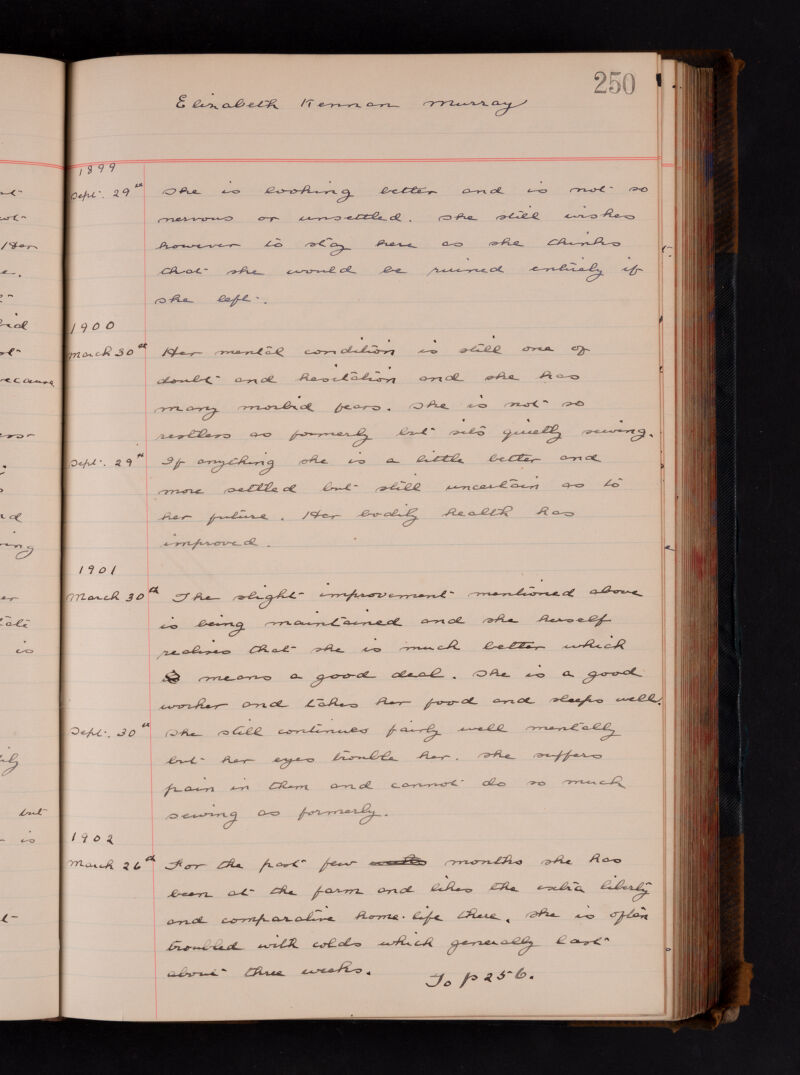 250
Elizabeth Kennan Murray
1899
Sept. 29th She is looking better and is not so
nervous or unsettled. She still wishes
however to stay here as she thinks
that she would be ruined entirely if
she left.
1900
March 30th Her mental condition is still one of
doubt and hesitation and she has
many morbid fears. She is not so
restless as formerly but sits quietly sewing.
Sept. 29th If anything she is a little better and
more settled but still uncertain as to
her future. Her bodily health has
improved.
1901
March 30th The slight improvement mentioned above
is being maintained and she herself
realises that she is much better which
means a good deal. She is a good
worker and takes her food and sleeps well.
Sept. 30th She still continues fairly well mentally
but her eyes trouble her. She suffers
pain in them and cannot do so much
sewing as formerly.
1902
March 26th For the past few weeks months she has
been at the farm and likes the extra liberty
and comparative home-life there. She is often
troubled with colds which generally last
about three weeks. To p 256.